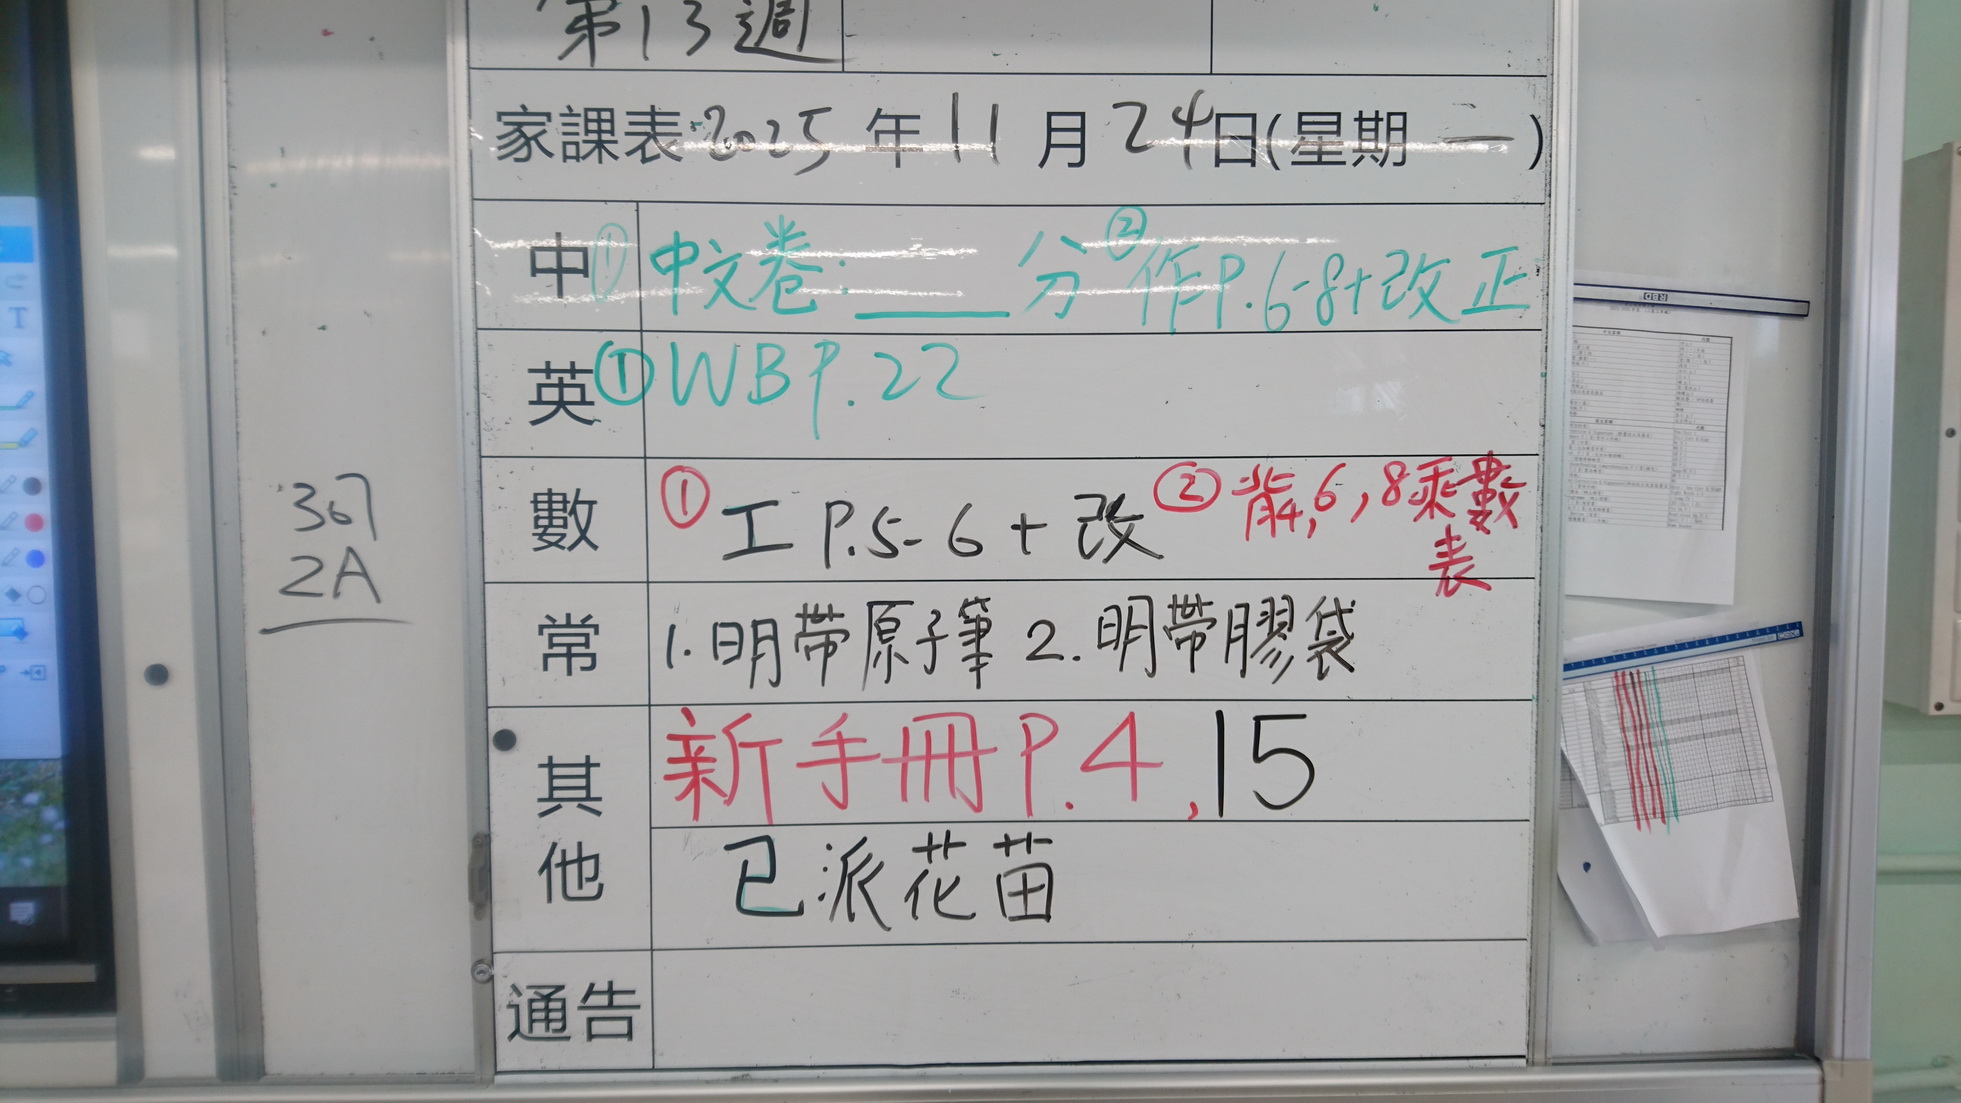 第13週
家課表 2025 年 11 月 24 日(星期 一 )
中 ① 中文卷: ____ 分 ② 作P.6-8+改正
英 ① WB P.22
數 ① 工 P.5-6 + 改 ② 背4,6,8乘數表
常 1.明帶原子筆 2.明帶膠袋
其他 新手冊P.4,15
已派花苗
通告
367
2A